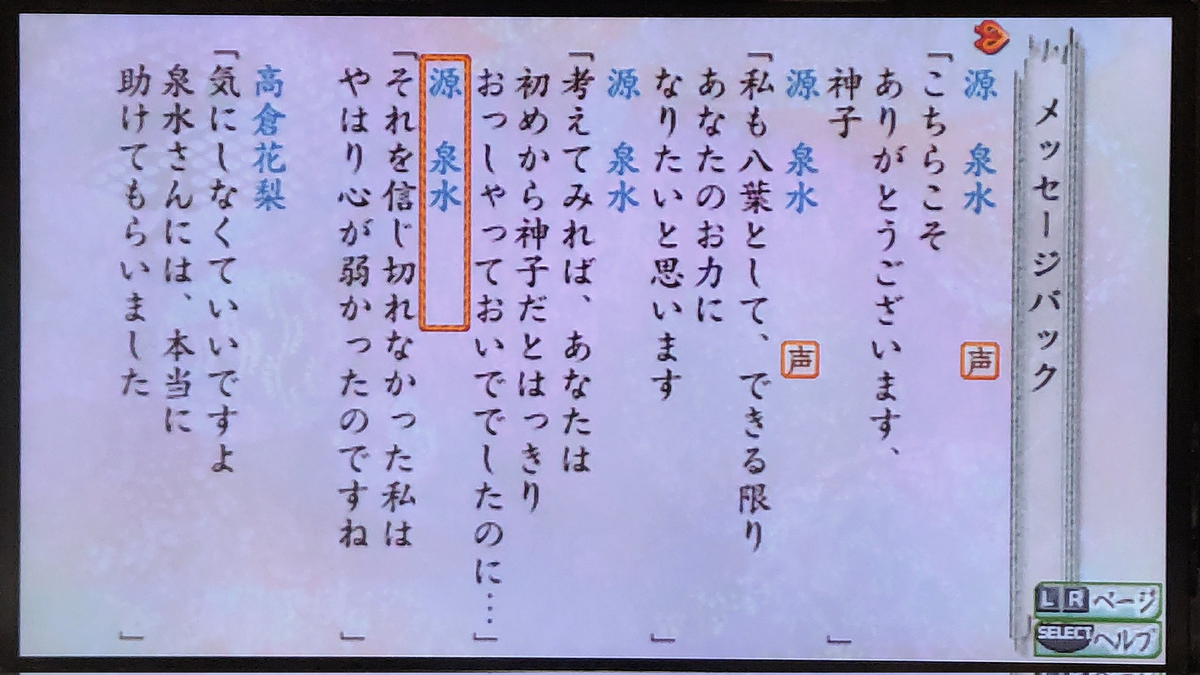 メッセージバック
源 泉水 声
「こちらこそ
ありがとうございます、
神子 」
源 泉水 声
「私も八葉として、できる限り
あなたのお力に
なりたいと思います 」
源 泉水
「考えてみれば、あなたは
初めから神子だとはっきり
おっしゃっておいででしたのに… 」
源 泉水
「それを信じ切れなかった私は
やはり心が弱かったのですね 」
高倉花梨
「気にしなくていいですよ
泉水さんには、本当に
助けてもらいました 」
L R ページ
SELECT ヘルプ